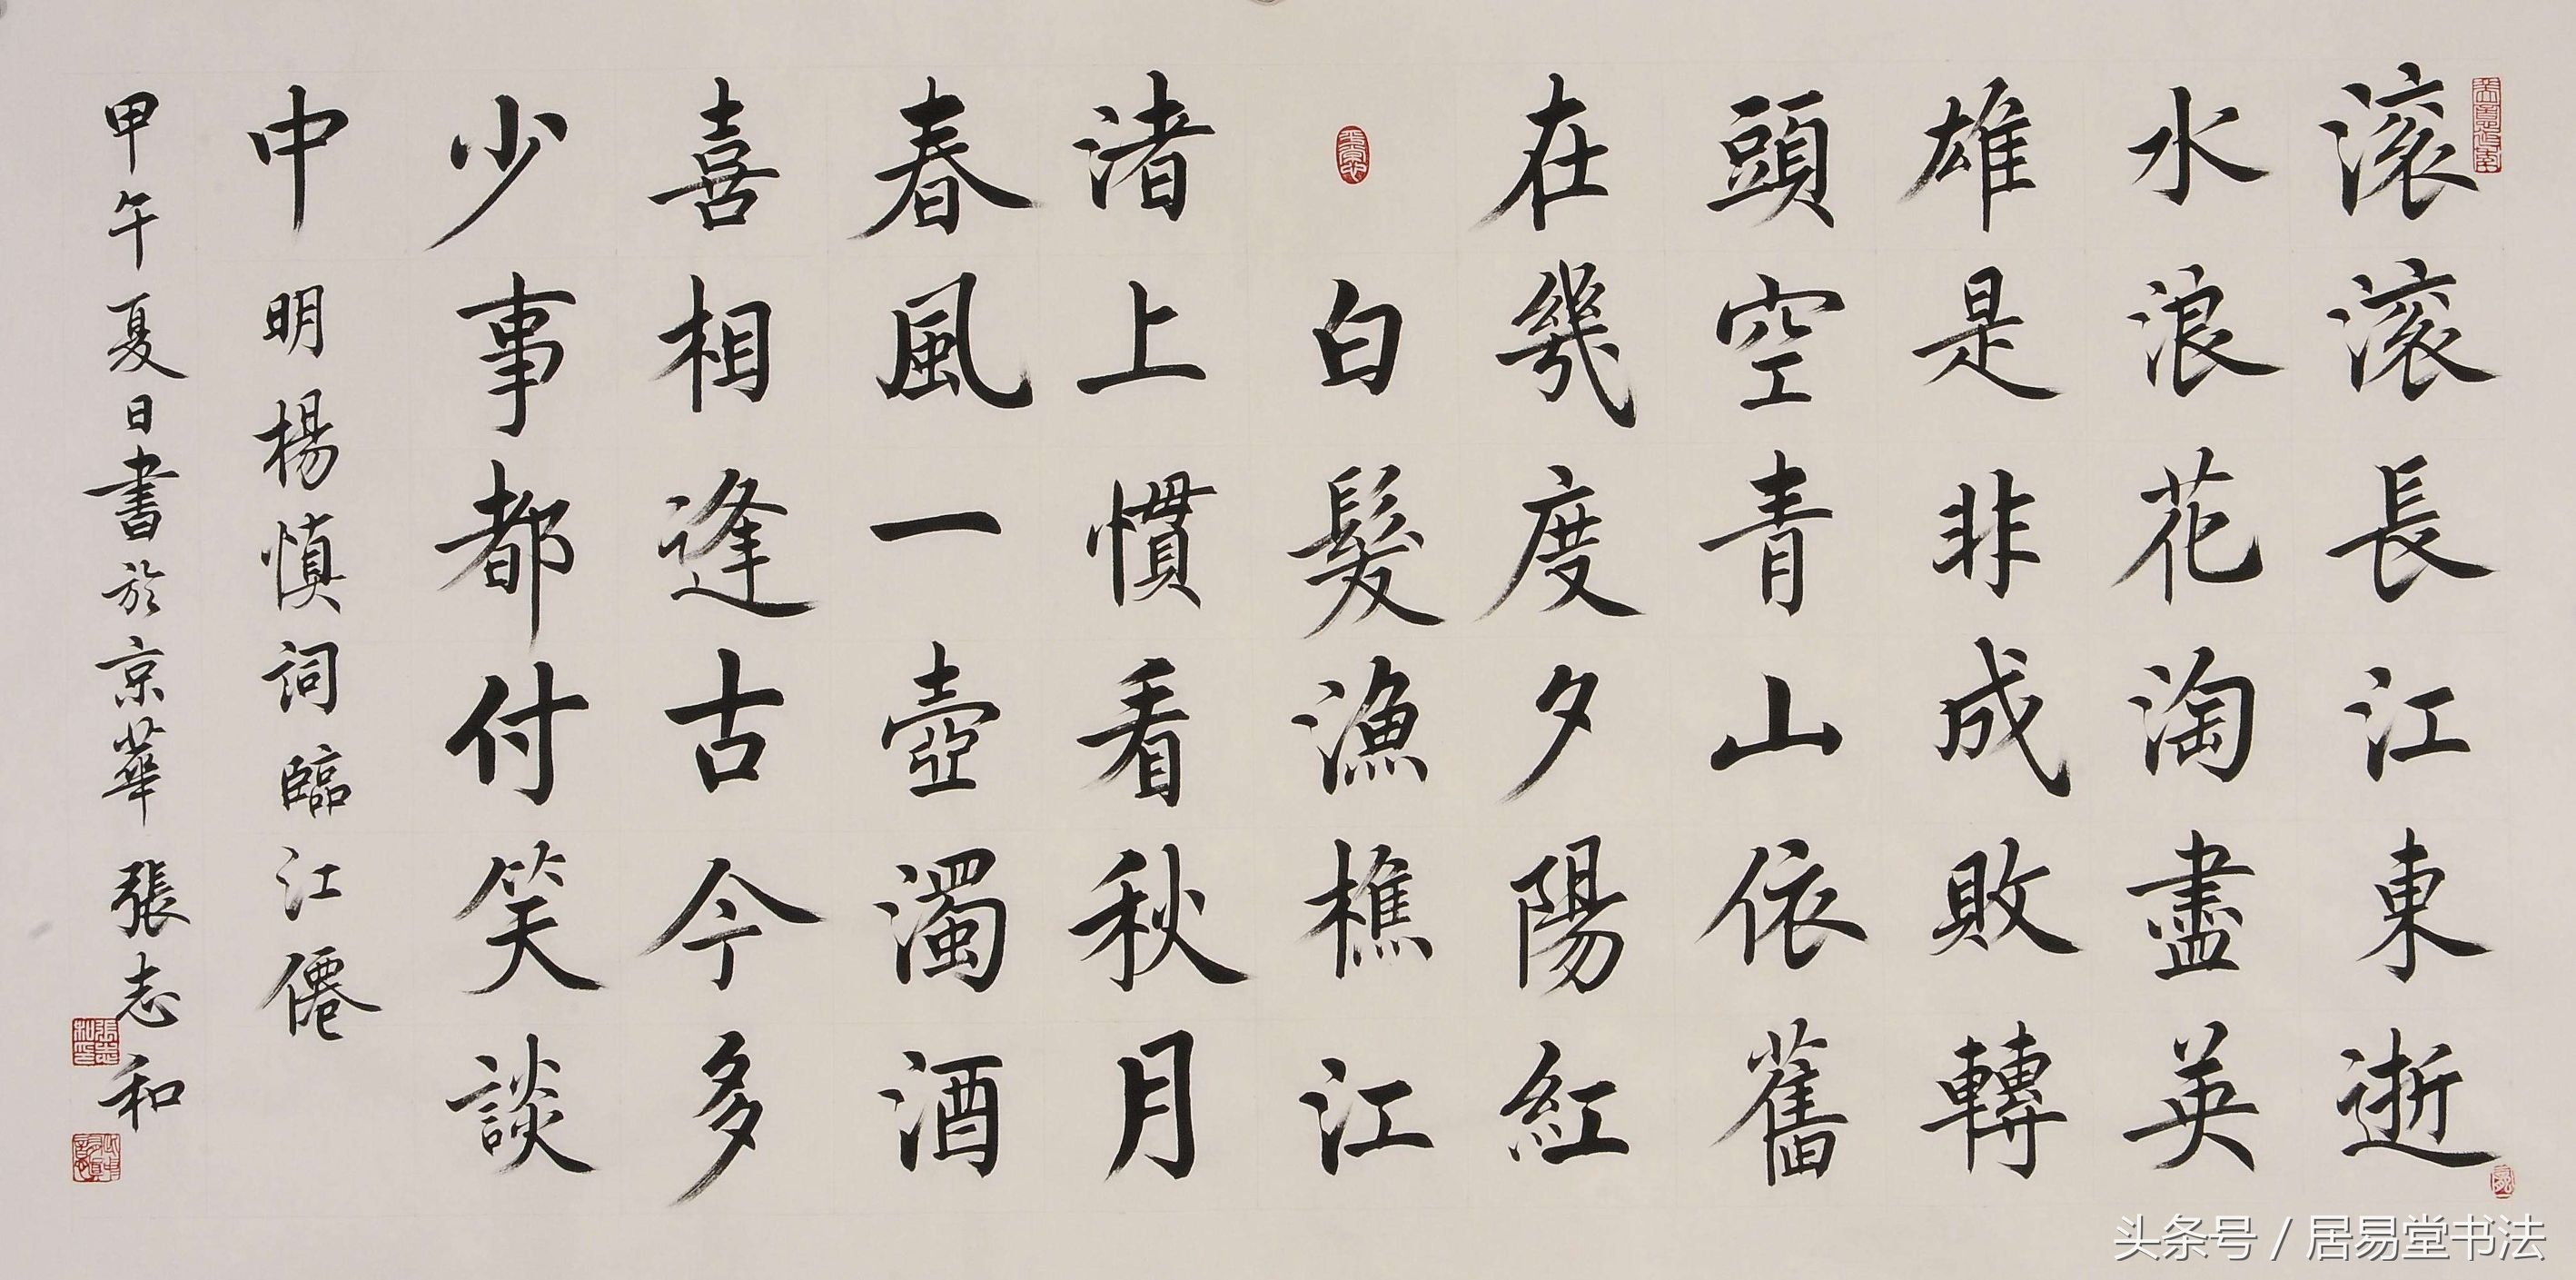 滚滚長江東逝
水浪花淘盡英
雄是非成敗轉
頭空青山依舊
在幾度夕陽紅
白髮漁樵江
渚上慣看秋月
春風一壺濁酒
喜相逢古今多
少事都付笑談
中
明楊慎詞臨江僊
甲午夏日書於京華張志和
头条号 / 居易堂书法